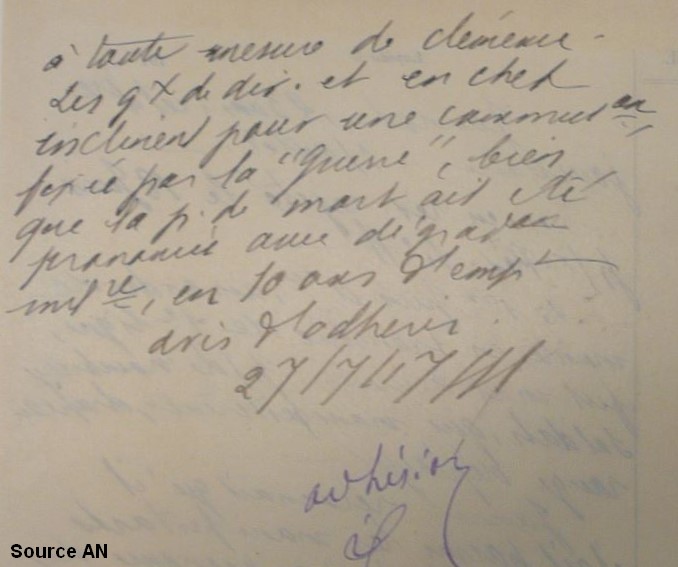 à toute mesure de clémence.
Les g x de div. et en chef
inclinent pour une commut on
fixée par la "Guerre", bien
que la p. de mort ait été
prononcée avec dégrad on
mil re, en 10 ans d'emp t
avis d'adhérer.
27/7/17
adhésion
Source AN